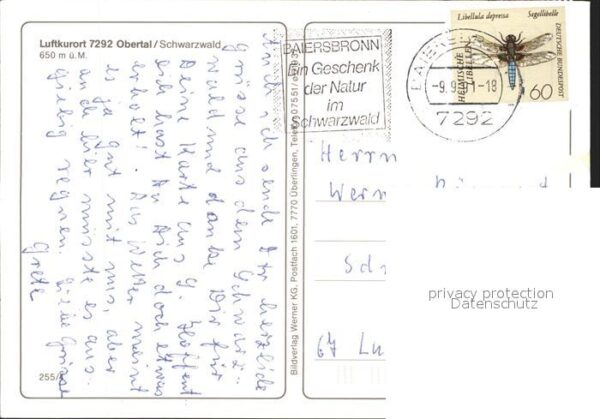 Luftkurort 7292 Obertal / Schwarzwald
650 m ü. M.
Auch ich sende Dir herzliche
Grüsse aus dem Schwarz-
wald und danke Dir für
Deine Karte aus G. Hoffent
lich hast Du Dich doch etwas
erholt! Das Wetter meint
es ja gut mit uns, aber
auch hier müsste es aus-
giebig regnen. Liebe Grüsse
Grete
255/
Bildverlag Werner KG. Postfach 1601, 7770 Überlingen, Telefon 07551/
BAIERSBRONN
Ein Geschenk
der Natur
im
Schwarzwald
-9.9.91-18
7292
Libellula depressa Segellibelle
HEIMISCHE LIBELLEN
DEUTSCHE BUNDESPOST
60
Herrn
Werner
67 Lu
privacy protection
Datenschutz